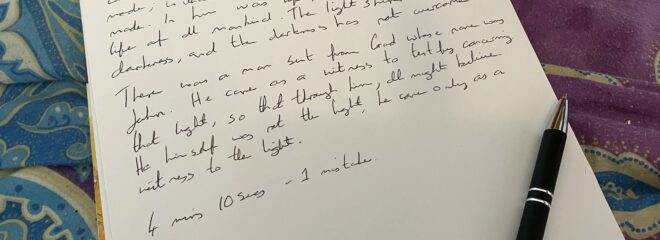 made
made. In him was
life of all mankind. The light
darkness, and the darkness has not overcome
There was a man sent from God whose name was
John. He came as a witness to testify concerning
that light, so that through him, all might believe.
He himself was not the light, he came only as a
witness to the light.
4 mins 10 secs - 1 mistake.